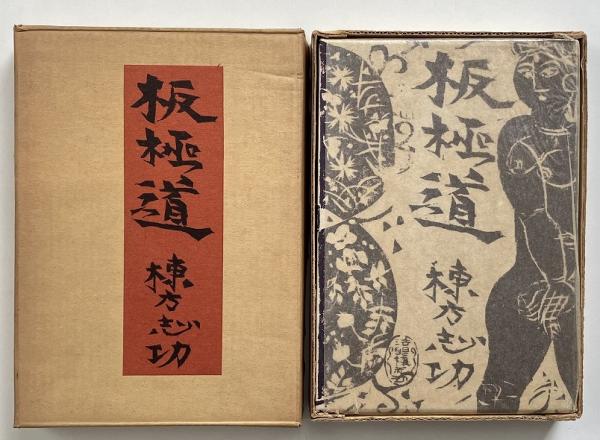 板極道
棟方志功
板極道
棟方志功